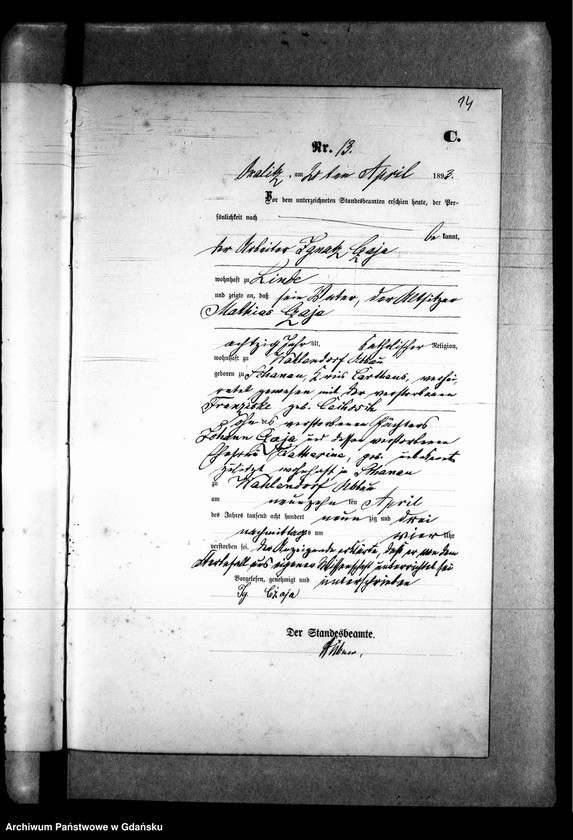 14
C.
Nr. 13.
am 20ten April 1893.
Vor dem unterzeichneten Standesbeamten erschien heute, der Per-
sönlichkeit nach
be kannt,
der Arbeiter Ignatz Czaja
wohnhaft zu Linde
und zeigte an, daß sein Vater, der Altsitzer
Mathias Czaja
achtzig Jahr alt, katholischer Religion,
wohnhaft zu Kathendorf Abbau
geboren zu Kreis Carthaus, verhei,
rathet gewesen mit der verstorbenen
Franziske geb.
Sohn des verstorbenen Pächters
Johann Czaja und dessen verstorbenen
Ehefrau Katharina, geb. unbekannt
zuletzt wohnhaft in
zu Abbau
am neunzehn ten April
des Jahres tausend acht hundert neun zig und drei
nachmittags um vier Uhr
verstorben sei. Der Anzeigende erklärte, daß er von dem
Sterbefall aus eigener Wissenschaft unterrichtet sei
Vorgelesen, genehmigt und unterschrieben
Ig. Czaja
Der Standesbeamte.
Archiwum Państwowe w Gdańsku